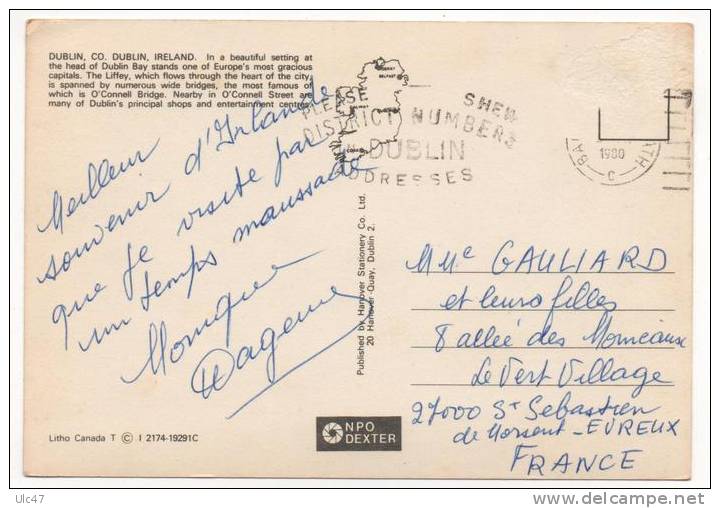 DUBLIN, CO. DUBLIN, IRELAND. In a beautiful setting at
the head of Dublin Bay stands one of Europe's most gracious
capitals. The Liffey, which flows through the heart of the city,
is spanned by numerous wide bridges, the most famous of
which is O'Connell Bridge. Nearby in O'Connell Street are
many of Dublin's principal shops and entertainment centres.
PLEASE SHEW
DISTRICT NUMBERS
IN DUBLIN
ADDRESSES
1980
C
Meilleur
souvenir d'Irlande
que je visite par
un temps maussade
Monique
Published by Hanover Stationery Co. Ltd.
20 Hanover Quay, Dublin 2.
GAULIARD
et leurs filles
8 allée des Morneaux
Le Vert Village
27000 St Sebastien
de Morsent - EVREUX
FRANCE
NPO
DEXTER
Litho Canada T © I 2174-19291C
Ulc47
delcampe.net